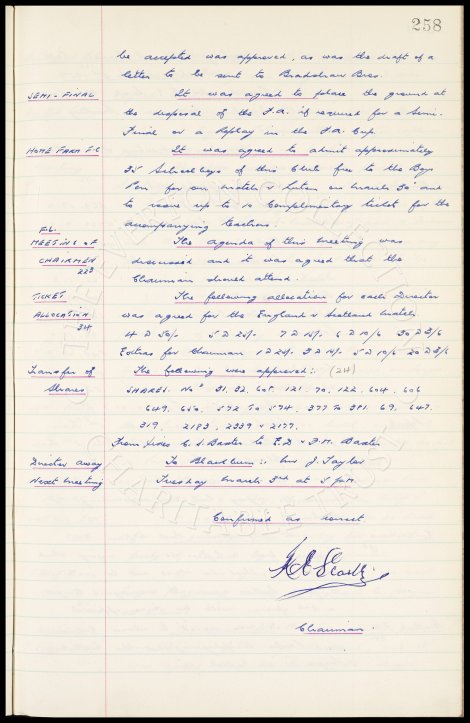 258
be accepted was approved, as was the draft of a
letter to be sent to Bradshaw Bros.
SEMI-FINAL It was agreed to place the ground at
the disposal of the F.A. if required for a Semi-
Final or a Replay in the F.A. Cup.
HOME FARM F.C It was agreed to admit approximately
35 Schoolboys of this Club free to the Boys
Pen for our match v Luton on March 30th and
to issue up to 10 Complimentary tickets for the
accompanying teachers.
F.L.
MEETING OF The agenda of this meeting was
CHAIRMEN discussed and it was agreed that the
Chairman should attend.
TICKET The following allocation for each Director
ALLOCATION was agreed for the England v Scotland match:
4 @ 50/- 5 @ 25/- 7 @ 15/- 6 @ 10/6 30 @ 3/6
Extras for Chairman 1 @ 25/- 3 @ 15/- 5 @ 10/6 20 @ 3/6
Transfer of The following were approved:- (24)
Shares SHARES. Nos 31, 32, 608, 121, 70, 122, 604, 606
649, 650, 572 To 574, 377 To 381, 69, 647,
319, 2183, 2339 & 2177.
From C. S. Baxter to E.D & F.M. Baxter
Director away To Blackburn:- Mr J. Taylor
Next meeting Tuesday March 3rd at 5 p.m.
Confirmed as correct
Chairman.
THE EVERTON COLLECTION
CHARITABLE TRUST